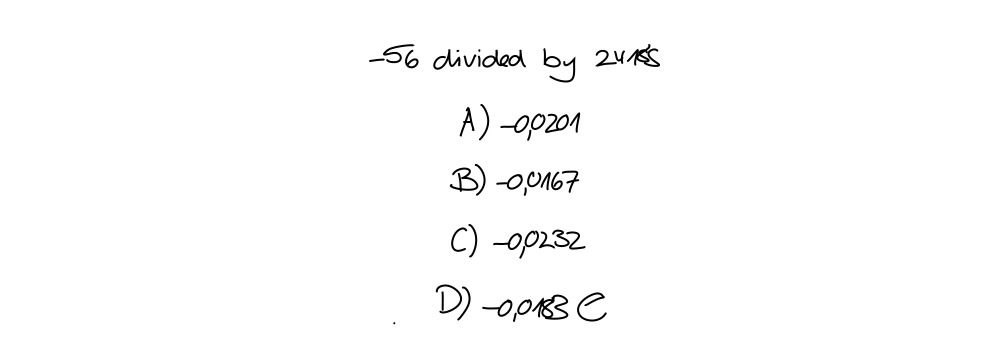 -56 divided by
A) -0,0201
B) -0,0167
C) -0,0232
D) -0,0183 e